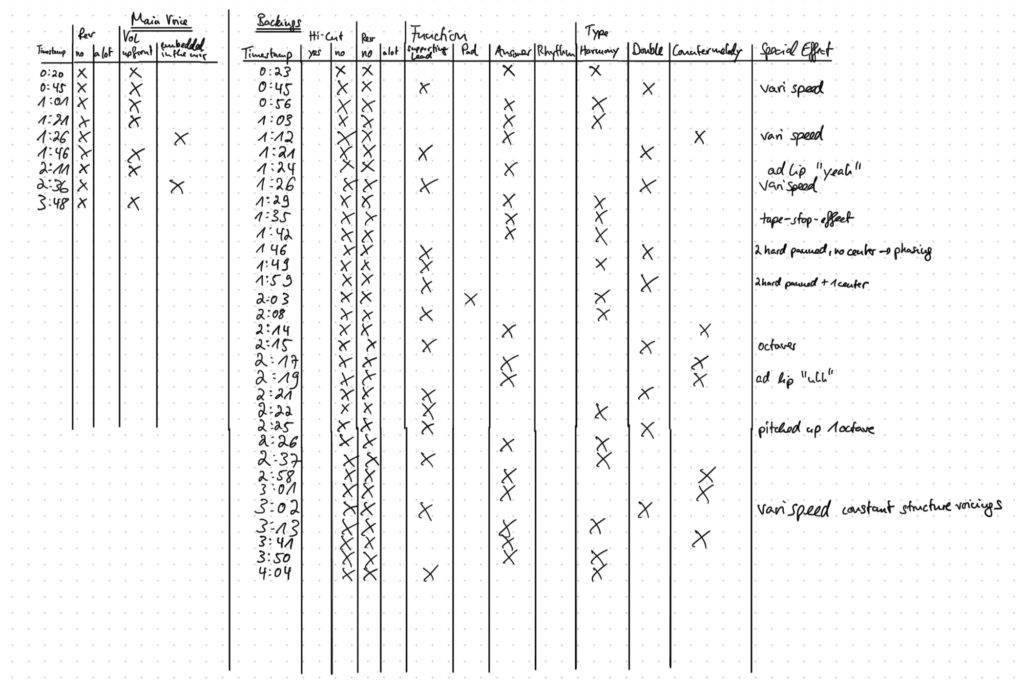 Main Voice
Rev Vol
Timestamp no a lot upfront embedded in the mix
0:20 x x
0:45 x x
1:01 x x
1:21 x x
1:26 x x
1:46 x x
2:11 x x
2:36 x x
3:48 x x
Backings Hi-Cut Rev Function Type
Timestamp yes no no a lot supporting Lead Pad Answer Rhythm Harmony Double Countermelody Special Effect
0:23 x x x x
0:45 x x x x vari speed
0:56 x x x x
1:03 x x x x
1:12 x x x x vari speed
1:21 x x x x
1:24 x x x ad lip "yeah"
1:26 x x x x vari speed
1:29 x x x x
1:35 x x x x tape-stop-effect
1:42 x x x x
1:46 x x x x 2 hard panned, no center → phasing
1:49 x x x x
1:59 x x x x 2 hard panned + 1 center
2:03 x x x x
2:08 x x x x
2:14 x x x x
2:15 x x x x octaves
2:17 x x x x
2:19 x x x x ad lip "uhh"
2:21 x x x x
2:22 x x x x
2:25 x x x x pitched up 1 octave
2:26 x x x x
2:37 x x x x
2:58 x x x x
3:01 x x x x
3:02 x x x x vari speed constant structure voicings
3:13 x x x x
3:41 x x x x
3:50 x x x x
4:04 x x x x